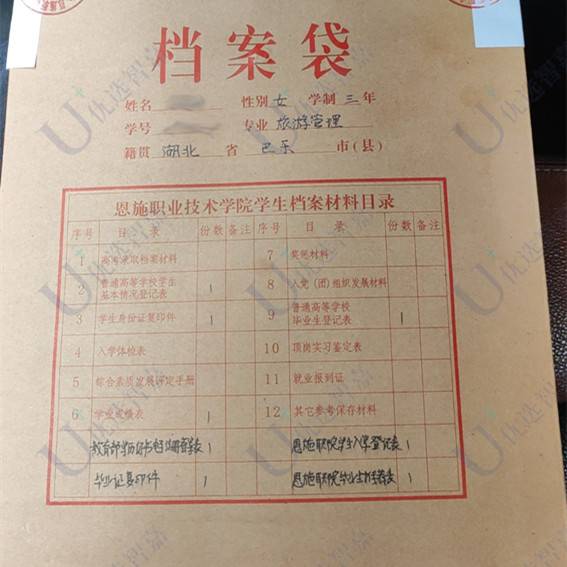 档案袋
姓名 性别 女 学制 三 年
学号 专业 旅游管理
籍贯 湖北 省 巴东 市(县)
恩施职业技术学院学生档案材料目录
序号 目录表 份数 备注 序号 目录 份数 备注
1 高考录取档案材料 7 奖惩材料
2 普通高等学校学生基本情况登记表 1 8 入党(团)组织发展材料
3 学生身份证复印件 1 9 普通高等学校毕业生登记表 1
4 入学体检表 10 顶岗实习鉴定表
5 综合素质发展评定手册 11 就业报到证
6 学业成绩表 1 12 其它参考保存材料
教育部学历证书电子注册备案表 1 恩施职院学生入学登记表 1
毕业证复印件 1 恩施职院毕业生推荐表 1
优选智嘉